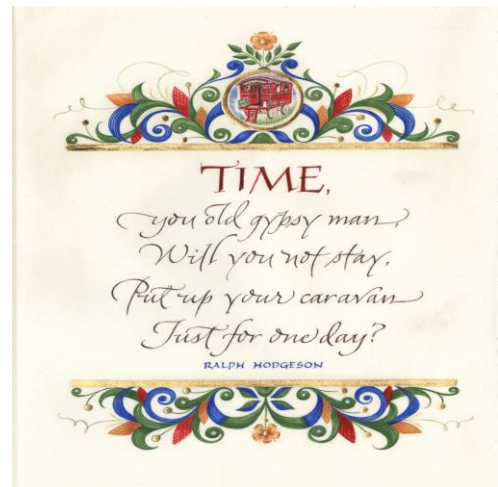 TIME,
you old gypsy man,
Will you not stay,
Put up your caravan
Just for one day?
RALPH HODGESON